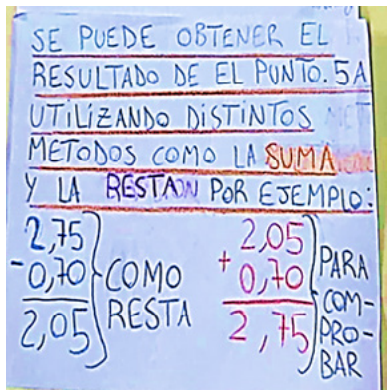 SE PUEDE OBTENER EL
RESULTADO DE EL PUNTO. 5A
UTILIZANDO DISTINTOS
METODOS COMO LA SUMA
Y LA RESTA POR EJEMPLO:
2,75
-0,70
2,05
COMO
RESTA
2,05
+ 0,70
2,75
PARA
COM-
PRO-
BAR